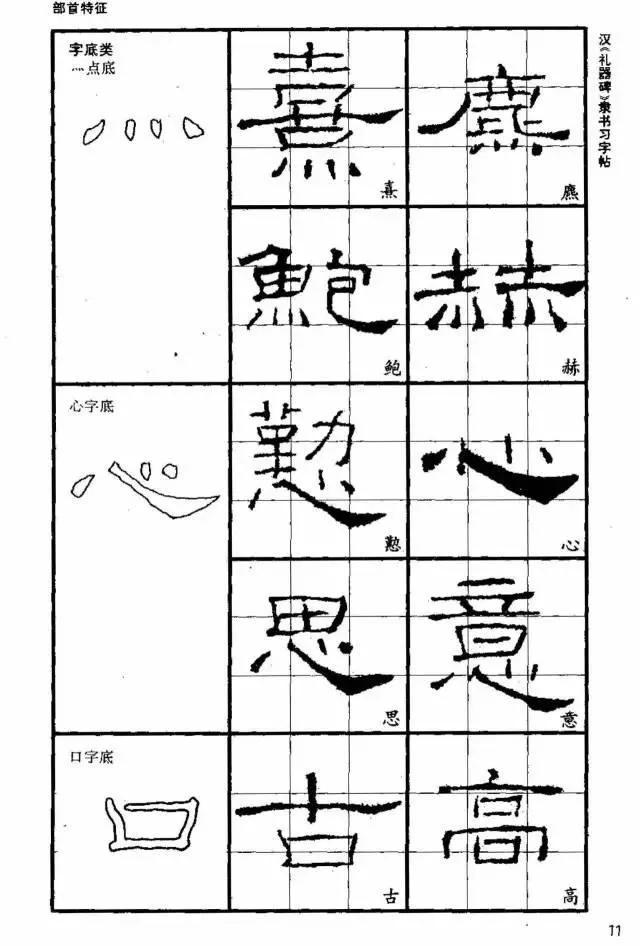 部首特征
汉《礼器碑》隶书习字帖
字底类
灬点底
熹
熹
鲍
赫
鲍 赫
心字底
懃 心
懃 心
思 意
思 意
口字底
古 高
古 高
11